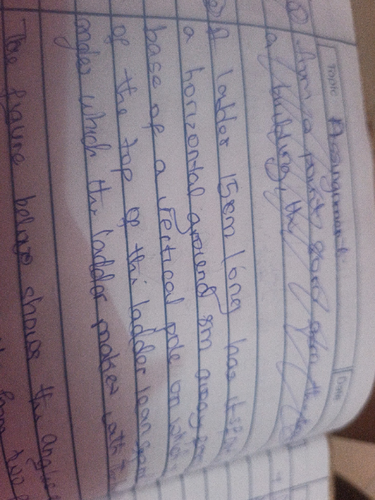 Topic Assignment Date
① from a point 20m from the
a building, the
② A ladder 15cm long has its
a horizontal ground 8m away from
base of a vertical pole on which
of the top of this ladder lean
angle which the ladder makes with the
The figure below shows the angle
from two